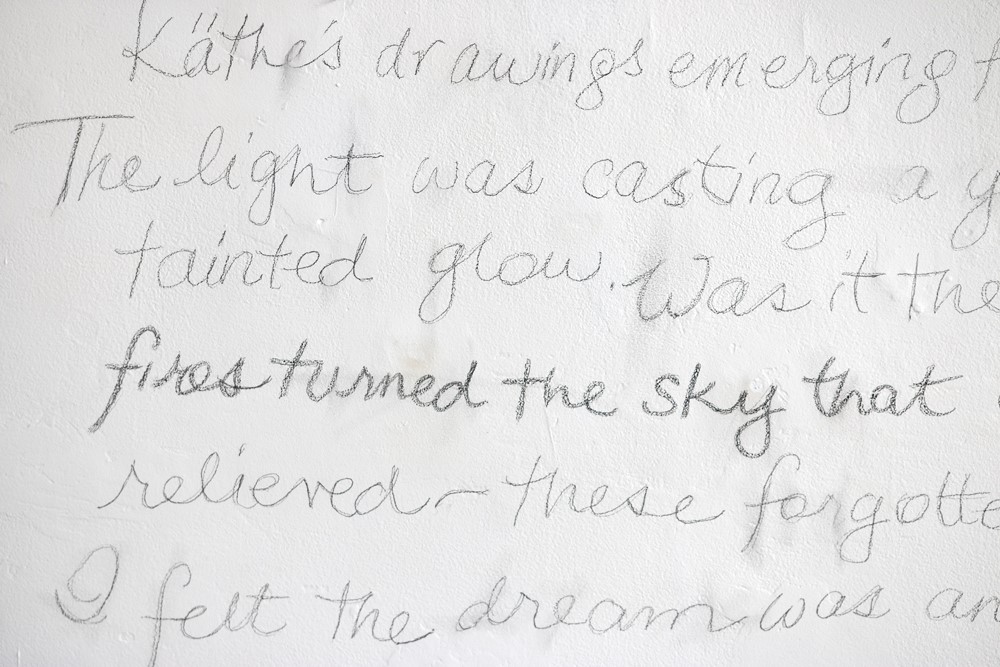 Käthe's drawings emerging f
The light was casting a y
tainted glow. Was it the
fires turned the sky that
relieved – these forgotte
I felt the dream was an